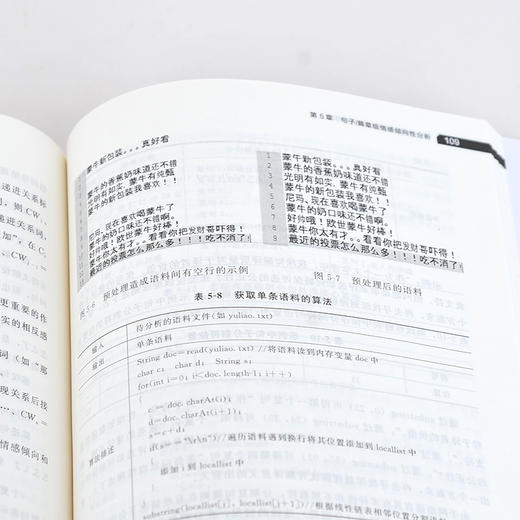 第5章 句子/篇章级情感倾向性分析 109
蒙牛新包装。。。真好看
蒙牛的香蕉奶味道还不错
光明有如实，蒙牛有纯甄
蒙牛的新包装我喜欢！！
尼玛，现在喜欢喝蒙牛了
蒙牛的奶口味还不错啊。
好帅哦！欧世蒙牛好棒！
蒙牛你太有才。。看看你把发财哥吓得！
最近的投票怎么那么多！！！吃不消了！
1 蒙牛新包装。。。真好看
2 蒙牛的香蕉奶味道还不错
3 光明有如实，蒙牛有纯甄
4 蒙牛的新包装我喜欢！！
5 尼玛，现在喜欢喝蒙牛了
6 蒙牛的奶口味还不错啊。
7 好帅哦！欧世蒙牛好棒！
8 蒙牛你太有才。。看看你把发财哥吓得！
9 最近的投票怎么那么多！！！吃不消了！
图 5-6 预处理造成语料间有空行的示例
图 5-7 预处理后的语料
表 5-8 获取单条语料的算法
输入 待分析的语料文件(如 yuliao.txt)
输出 单条语料
算法描述
String doc=read(yuliao.txt) //将语料读到内存变量 doc 中
char c; char d; String s;
for(int i=0; i<doc.length-1; i++)
{
c=doc.charAt(i);
d=doc.charAt(i+1);
s=c+d;
if(s=="\r\n") //遍历语料遇到换行将其位置添加到 locallist 中
添加 i 到 locallist 中
}
substring(locallist[i], locallist[i+1]) //根据线性链表相邻位置分割
递进关系标
则，则 CW
递进关系词，
加”，在 C
，CW
更重要的作
实的相反感
词（如“那
现关系后接
…、CW
情感倾向和